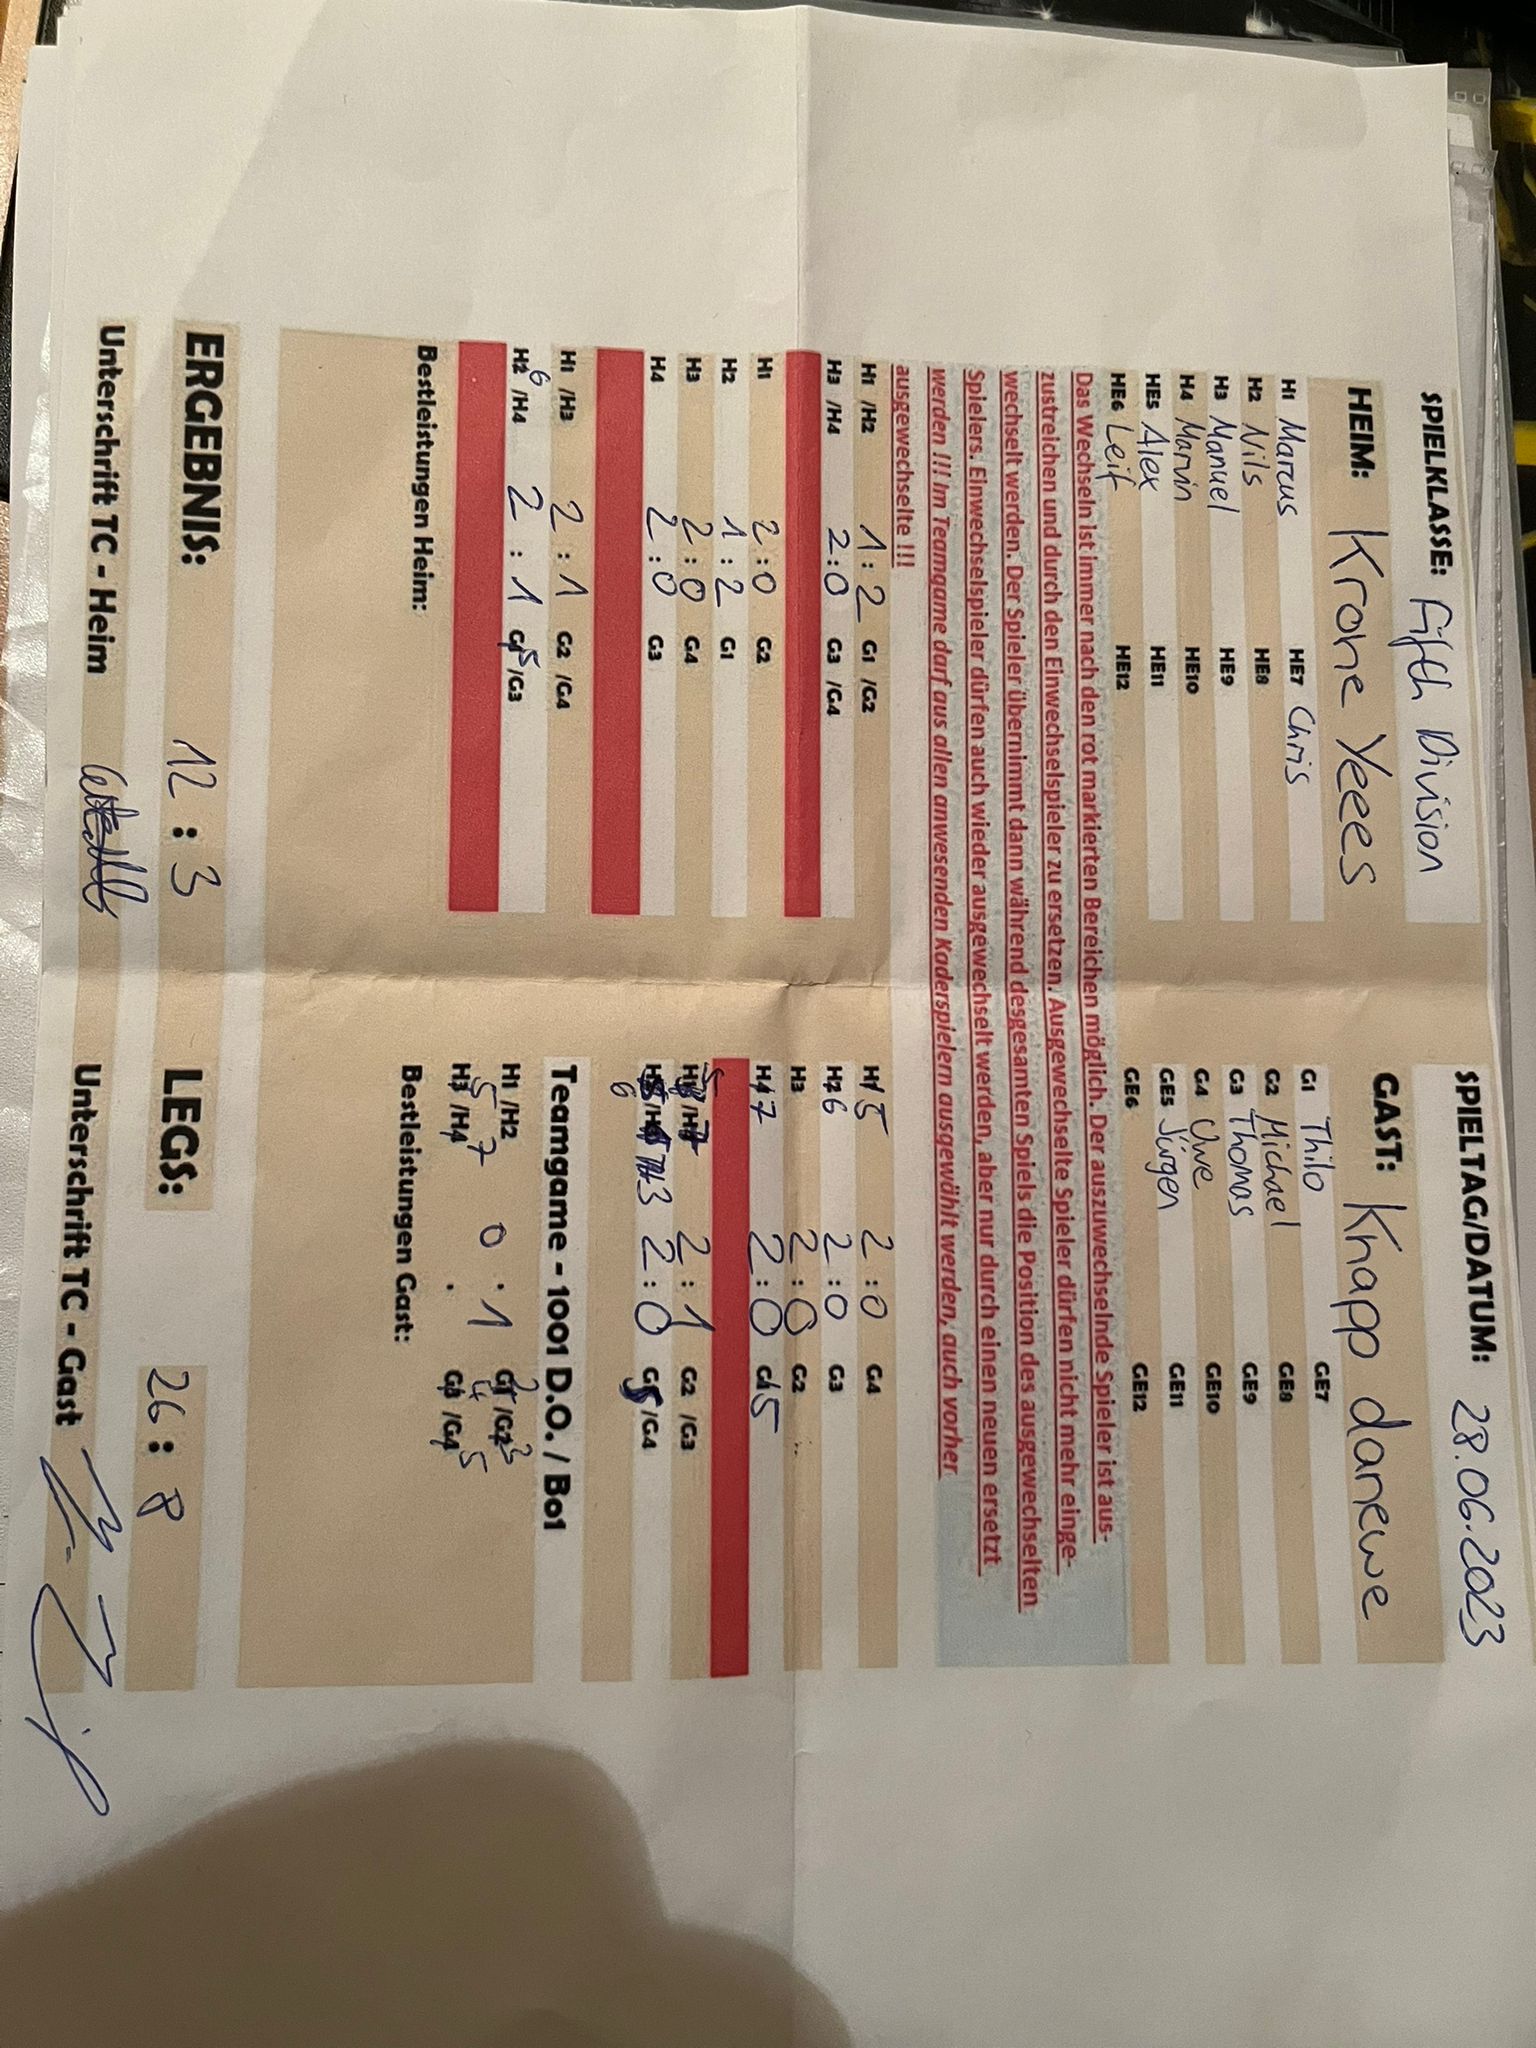 SPIELKLASSE: Fifth Division
SPIELTAG/DATUM: 28.06.2023
HEIM: Krone Yeees
GAST: Knapp danewe
H1 Marcus HE7 Chris
H2 Nils HE8
H3 Manuel HE9
H4 Marvin HE10
HE5 Alex HE11
HE6 Leif HE12
G1 Thilo GE7
G2 Michael GE8
G3 Thomas GE9
G4 Uwe GE10
GE5 Jürgen GE11
GE6 GE12
Das Wechseln ist immer nach den rot markierten Bereichen möglich. Der auszuwechselnde Spieler ist aus-
zustreichen und durch den Einwechselspieler zu ersetzen. Ausgewechselte Spieler dürfen nicht mehr einge-
wechselt werden. Der Spieler übernimmt dann während desgesamten Spiels die Position des ausgewechselten
Spielers. Einwechselspieler dürfen auch wieder ausgewechselt werden, aber nur durch einen neuen ersetzt
werden !!! Im Teamgame darf aus allen anwesenden Kaderspielern ausgewählt werden, auch vorher
ausgewechselte !!!
H1 /H2 1:2 G1 /G2
H3 /H4 2:0 G3 /G4
H1 2:0 G2
H2 1:2 G1
H3 2:0 G4
H4 2:0 G3
H1 /H3 2:1 G2 /G4
H2 6 /H4 2:1 5 /G3
Bestleistungen Heim:
H1 5 2:0 G4
H2 6 2:0 G3
H3 2:0 G2
H4 7 2:0 5
2:1 G2 /G3
6 3 2:0 /G4
Teamgame - 1001 D.O. / Bo1
H1 /H2 0:1
H3 5 /H4 7 :
Bestleistungen Gast:
ERGEBNIS: 12 : 3
LEGS: 26 : 8
Unterschrift TC - Heim
Unterschrift TC - Gast